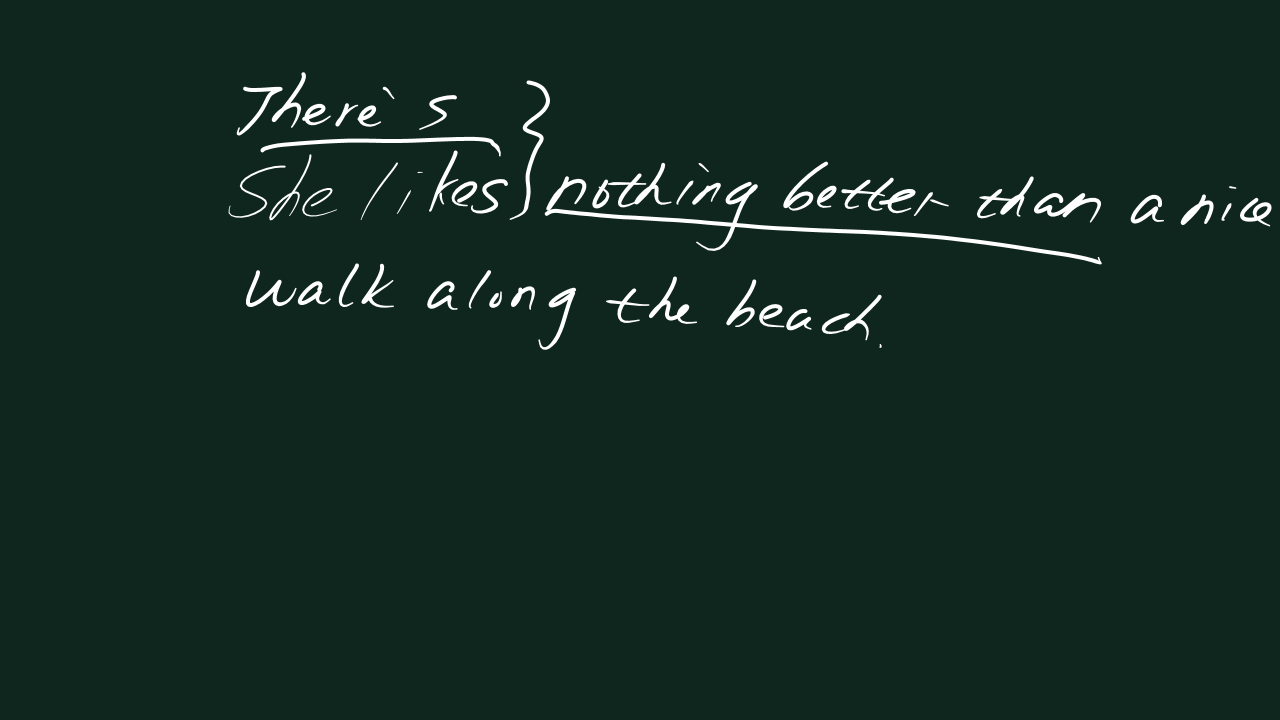 There's
She likes} nothing better than a nice
walk along the beach.